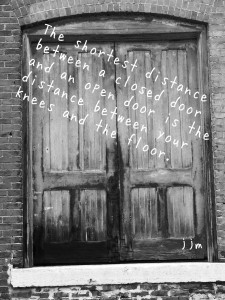 The shortest distance
between a closed door
and an open door is the
distance between your
knees and the floor.
jjm